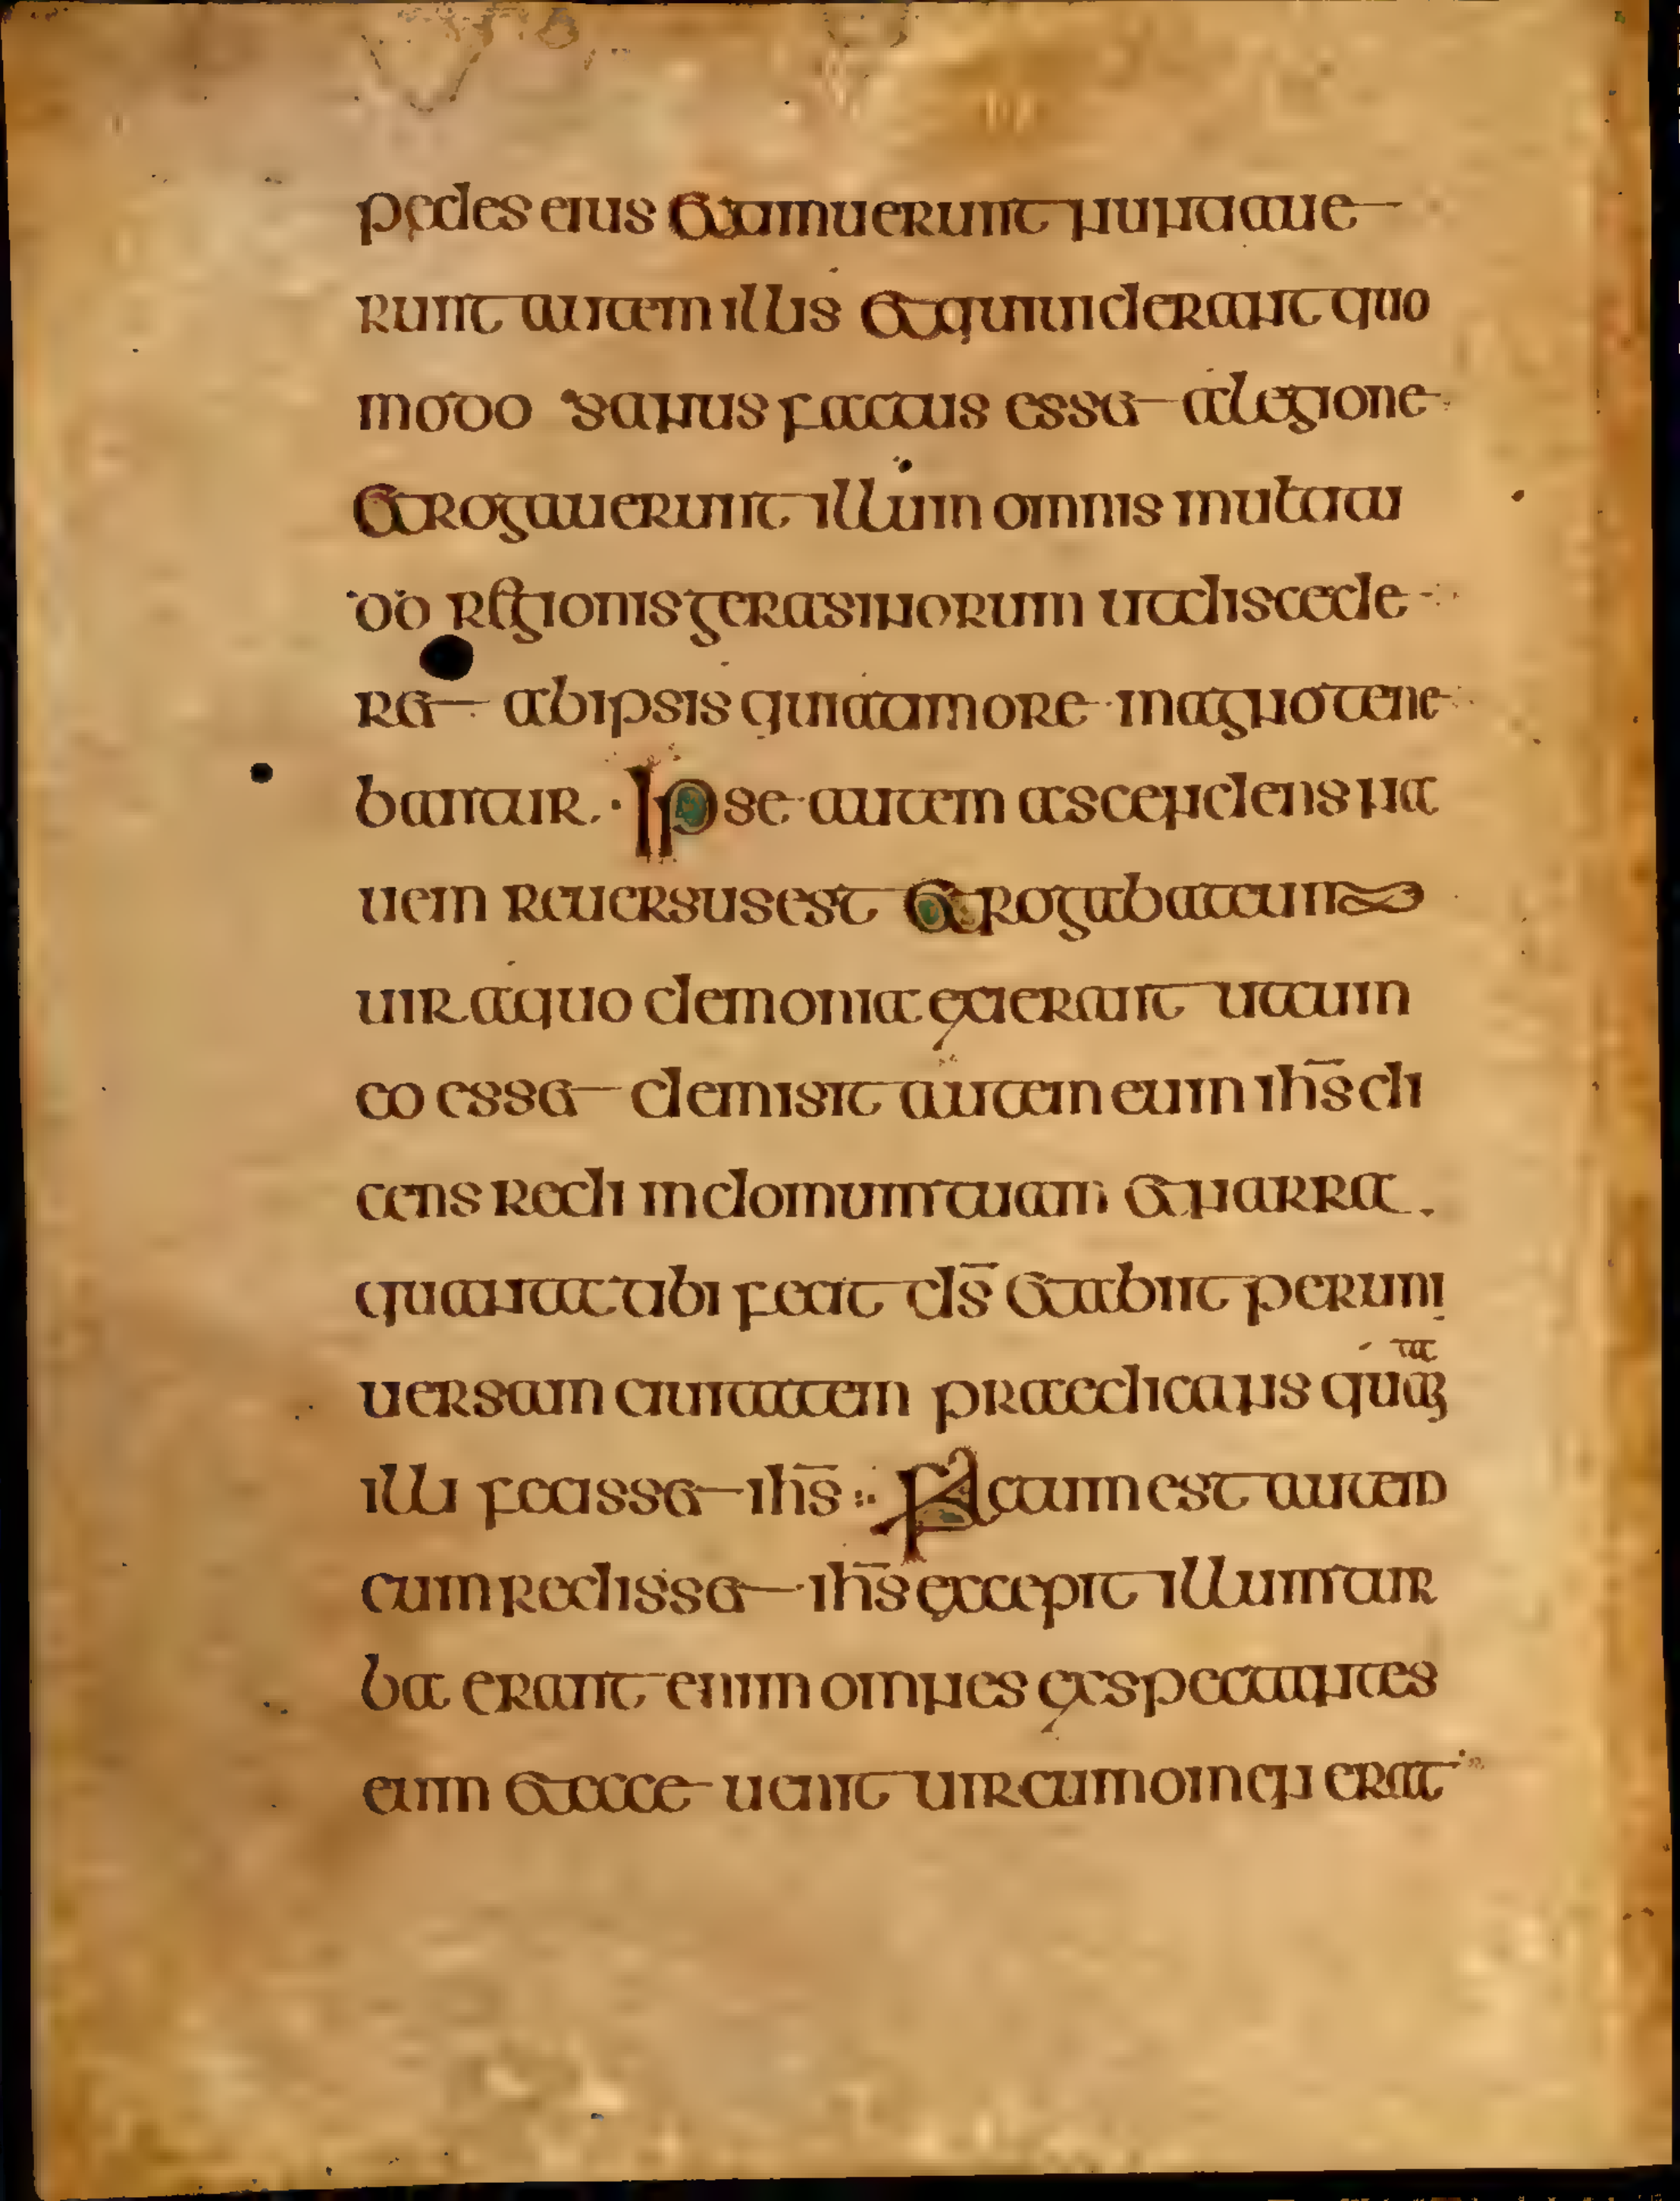 pedes eius et timuerunt nuntiaue
runt autem illis et qui uiderant quo
modo sanus factus esset a legione
et rogauerunt illum omnis multitu
do regionis gerasinorum ut discede
ret ab ipsis quia timore magno tene
bantur. Ipse autem ascendens na
uem reuersus est et rogabat eum
uir a quo demonia exierant ut cum
eo esset demisit autem eum ihs̄ di
cens redi in domum tuam et narra
quanta tibi fecit ds̄ et abiit per uni
uersam ciuitatem praedicans quataꝫ
illi fecisset ihs̄ Factum est autem
cum redisset ihs̄ excepit illum tur
ba erant enim omnes exspectantes
eum et ecce uenit uir cui nomen erat